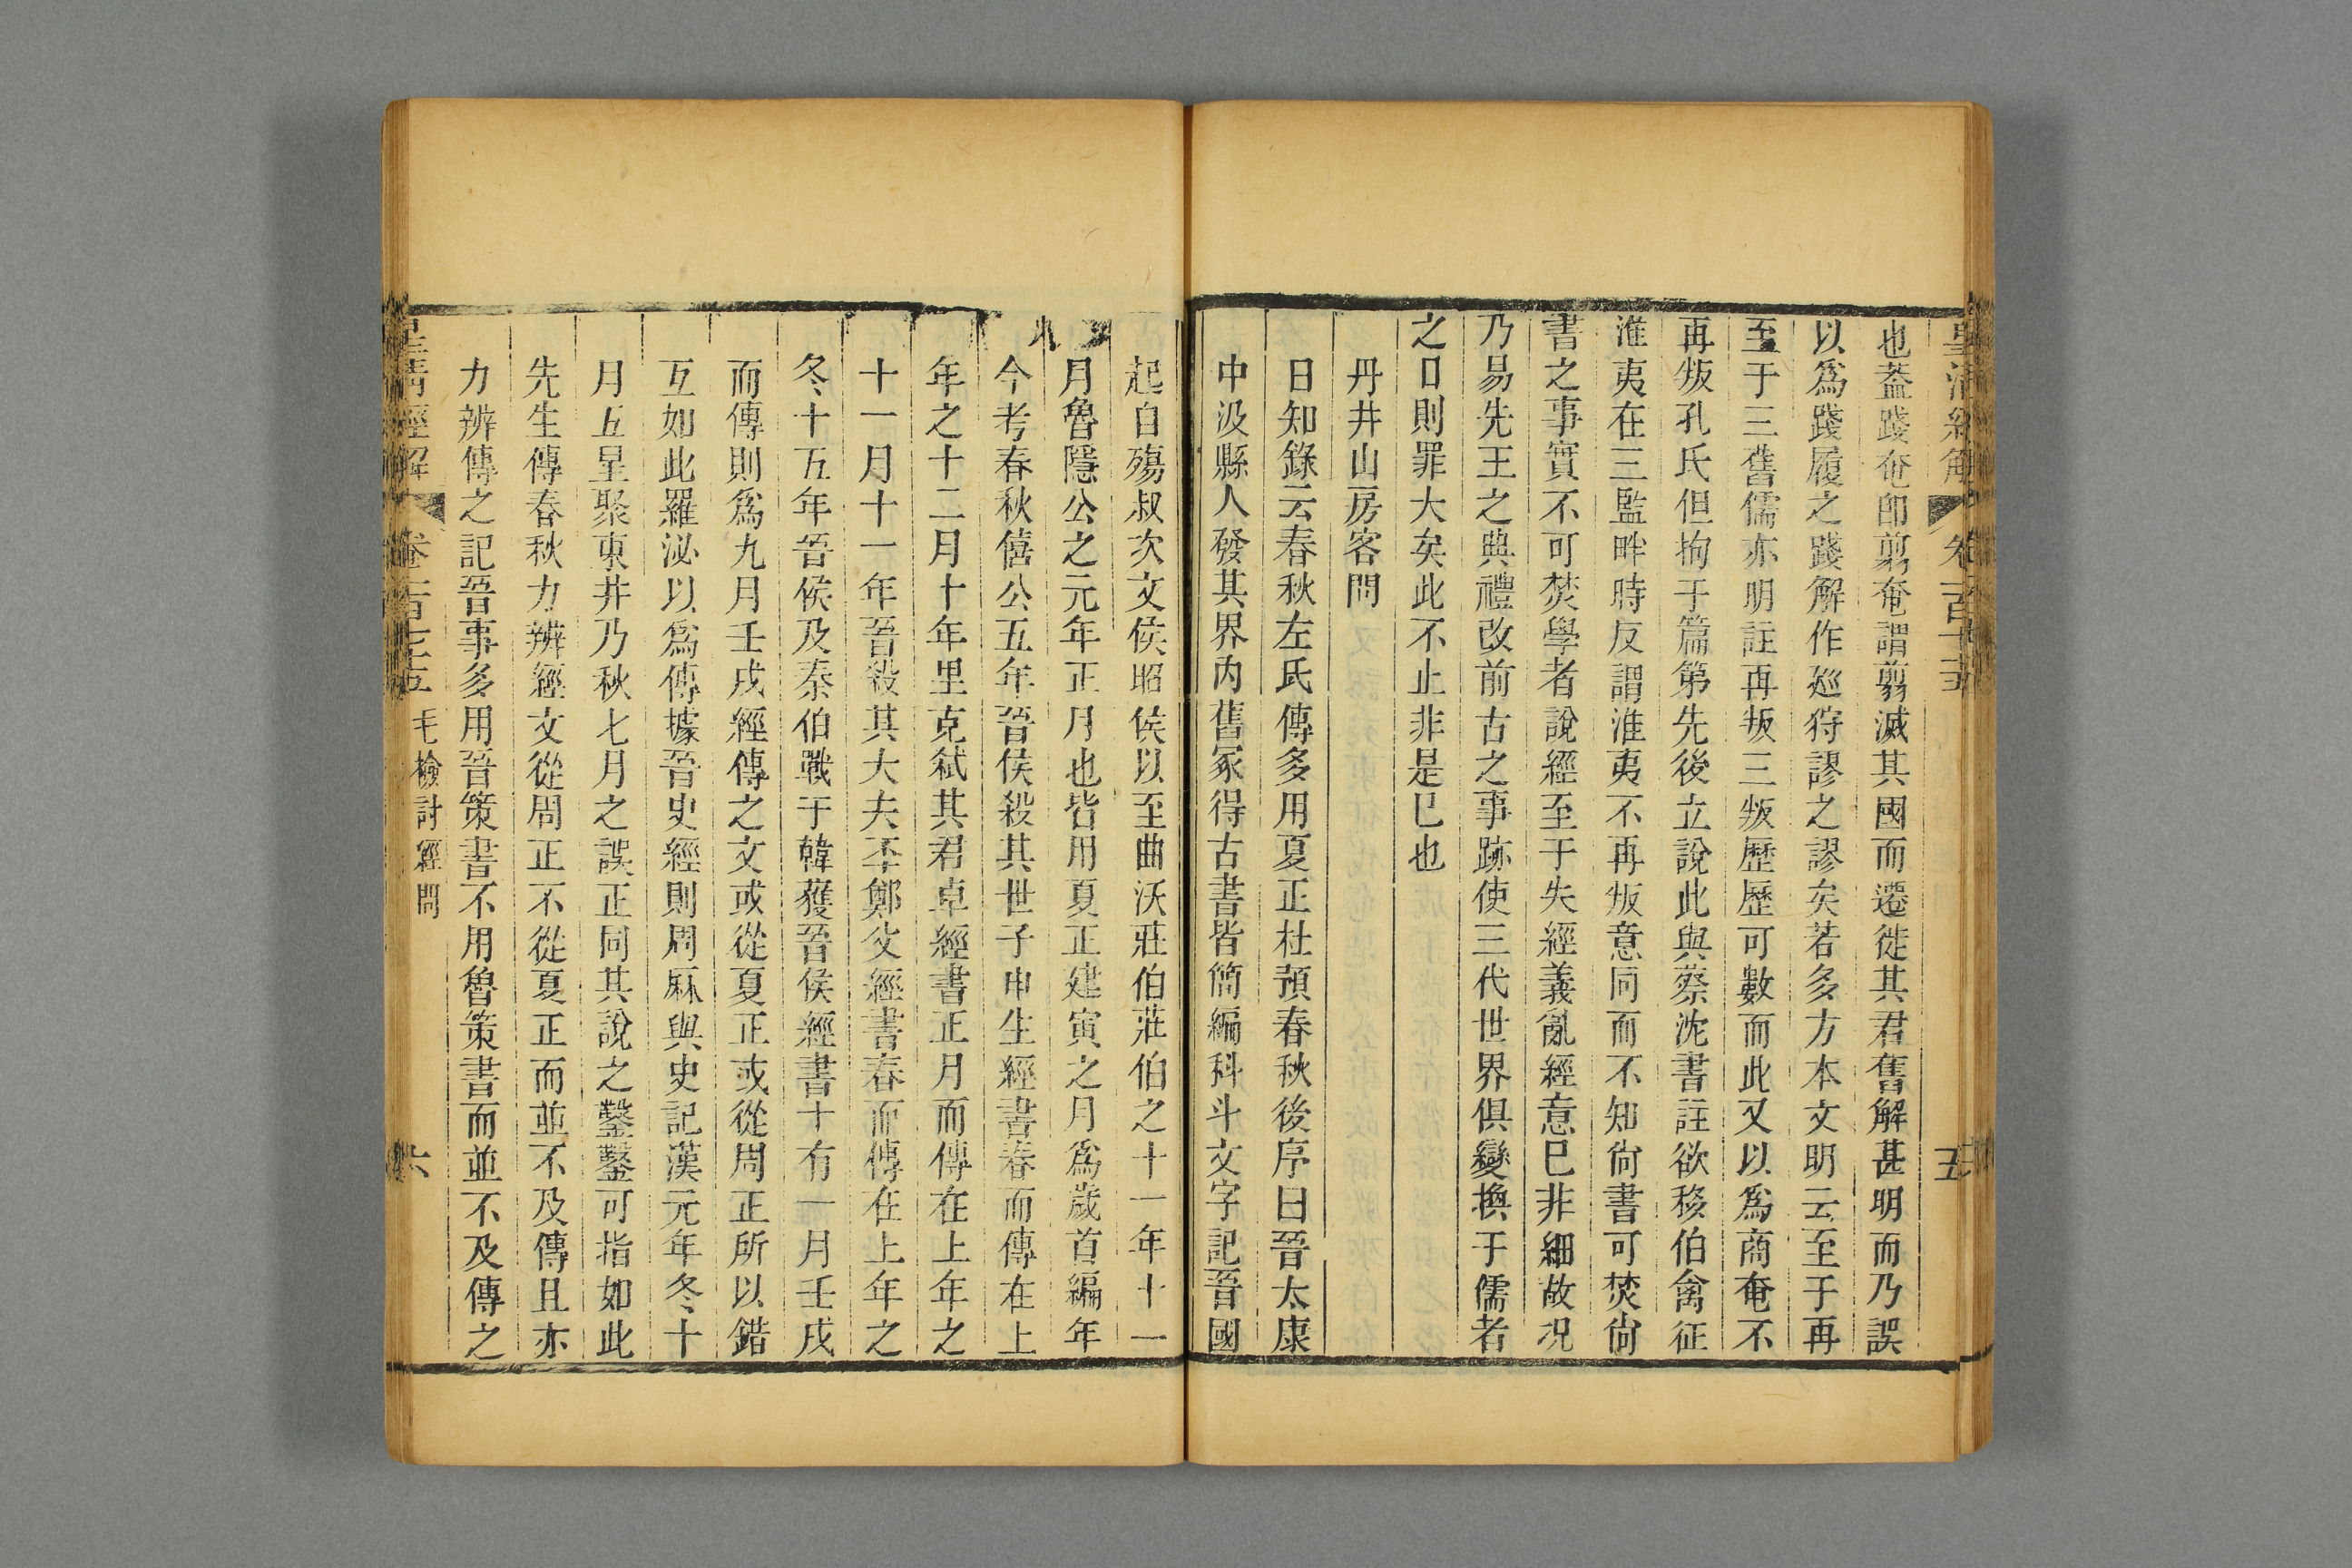 也蓋踐奄卽剪奄謂翦滅其國而遷徙其君舊解甚明而乃誤
以爲踐履之踐解作廵狩謬之謬矣若多方本文明云至于再
至于三舊儒亦明註再叛三叛歷歷可數而此又以爲商奄不
再叛孔氏但拘于篇第先後立說此與蔡沈書註欲移伯禽征
淮夷在三監畔時反謂淮夷不再叛意同而不知尙書可焚尙
書之事實不可焚學者說經至于失經義亂經意巳非細故况
乃易先王之典禮改前古之事跡使三代世界俱變換于儒者
之口則罪大矣此不止非是巳也
丹井山房客問
日知錄云春秋左氏傳多用夏正杜預春秋後序曰晉太康
中汲縣人發其界內舊冢得古書皆簡編科斗文字記晉國
起自殤叔次文侯昭侯以至曲沃莊伯莊伯之十一年十一
月魯隱公之元年正月也皆用夏正建寅之月爲歲首編年
今考春秋僖公五年晉侯殺其世子申生經書春而傳在上
年之十二月十年里克弑其君卓經書正月而傳在上年之
十一月十一年晉殺其大夫丕鄭父經書春而傳在上年之
冬十五年晉侯及秦伯戰于韓獲晉侯經書十有一月壬戌
而傳則爲九月壬戌經傳之文或從夏正或從周正所以錯
互如此羅泌以爲傳據晉史經則周厤與史記漢元年冬十
月五星聚東井乃秋七月之誤正同其說之鑿鑿可指如此
先生傳春秋力辨經文從周正不從夏正而並不及傳且亦
力辨傳之記晉事多用晉策書不用魯策書而並不及傳之
皇清經解 卷一百七十五 毛檢討經問 六